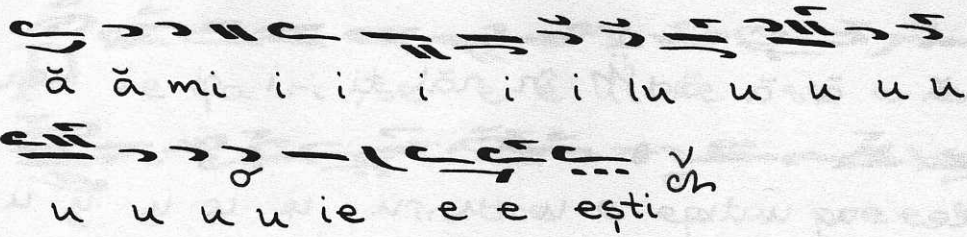 ă ă mi i i i i i lu u u u u
u u u u ie e e ești